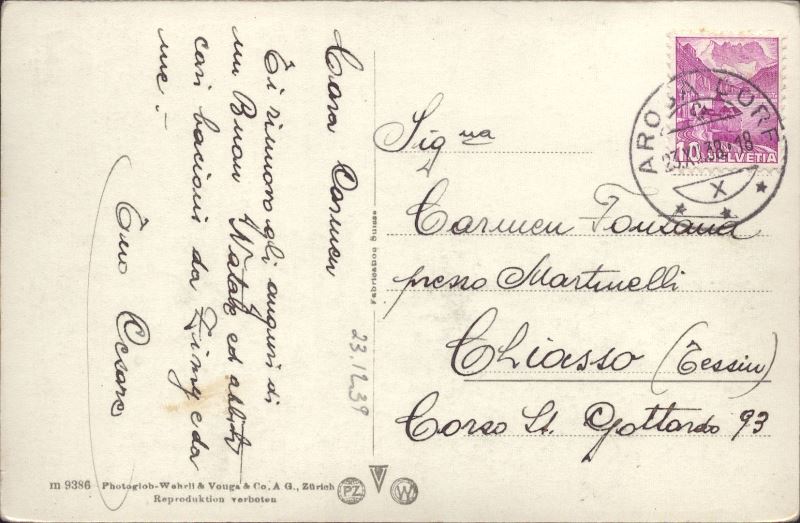 Cara Carmen
Ti rinnovo gli auguri di
un Buon Natale ed abbiti
cari bacioni da Zimy e da
me!
Tuo Cesare
23.12.39
Fabrication Suisse
m 9386 Photoglob-Wehrli & Vouga & Co. A G., Zürich
Reproduktion verboten
PZ
W
AROSA DORF
23.XII.38.18
X
10 HELVETIA
Sig na
Carmen Fontana
presso Martinelli
Chiasso (Tessin)
Corso St. Gottardo 93